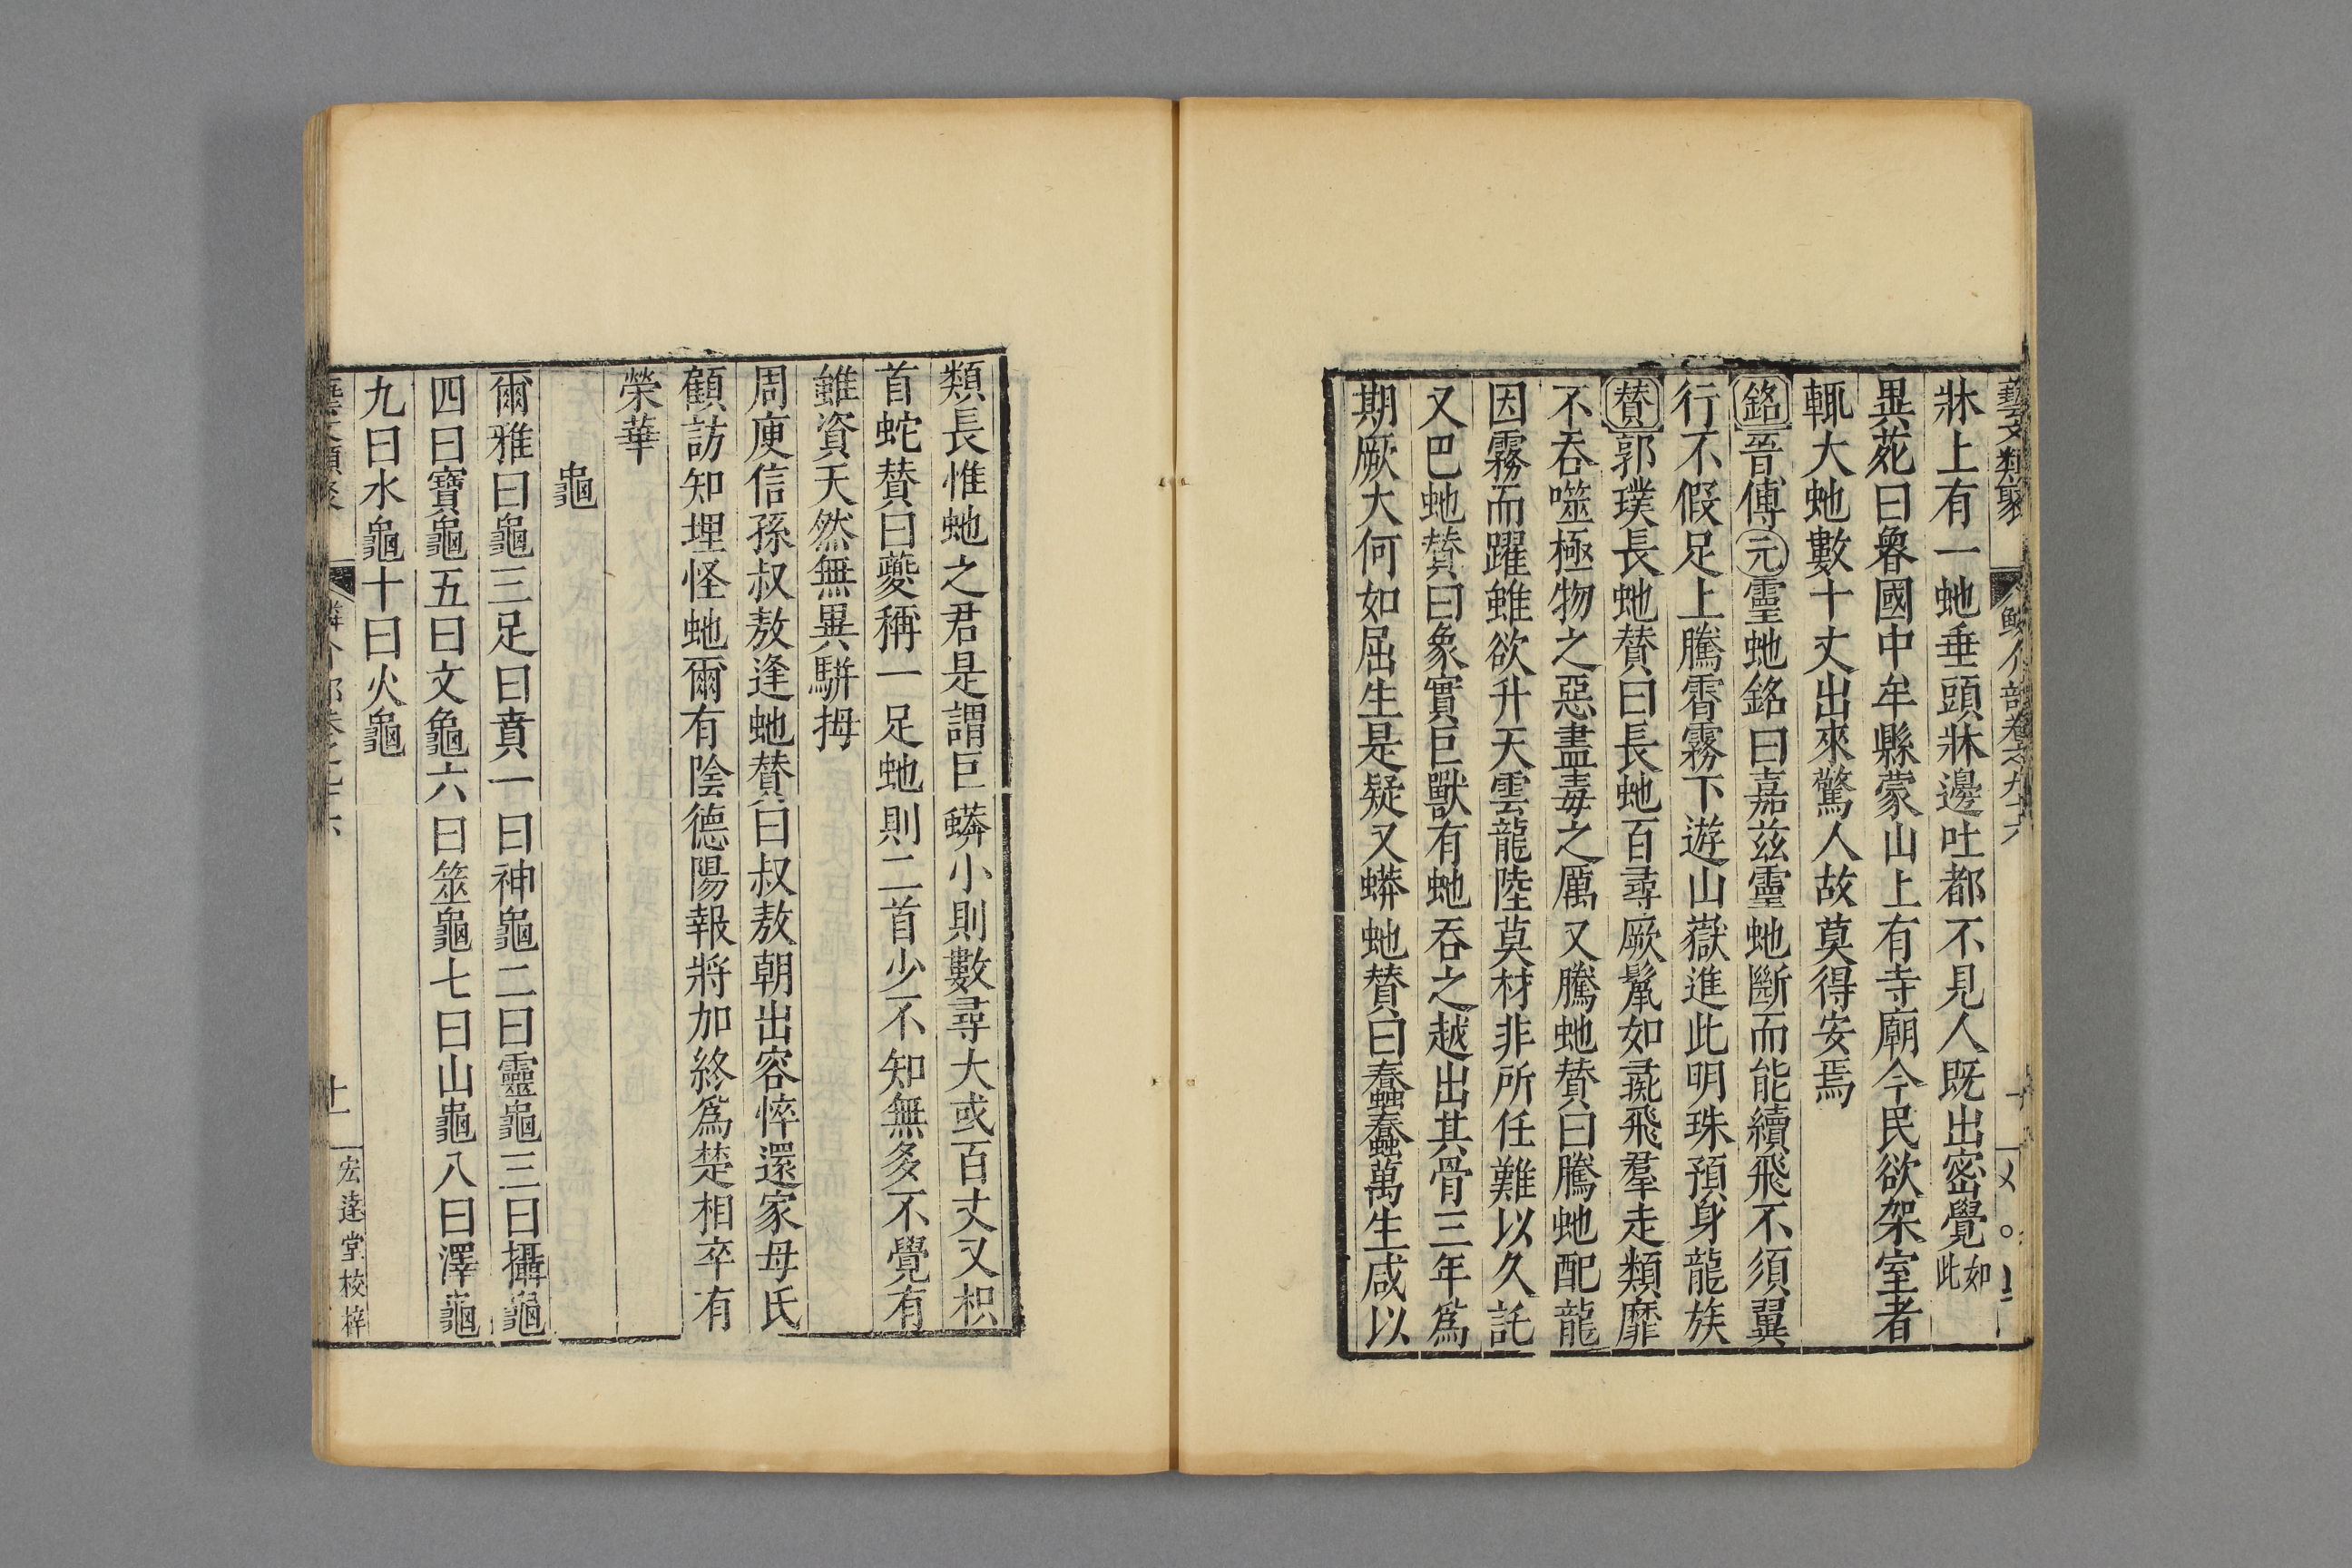 藝文類聚 鱗介部卷之九十六
牀上有一虵垂頭牀邊吐都不見人旣出密覺如此
異苑曰魯國中牟縣蒙山上有寺廟今民欲架室者
輒大虵數十丈出來驚人故莫得安焉
銘晉傅元靈虵銘曰嘉茲靈虵斷而能續飛不須翼
行不假足上騰霄霧下遊山嶽進此明珠預身龍族
贊郭璞長虵贊曰長虵百尋厥鬣如彘飛羣走類靡
不吞噬極物之惡盡毒之厲又騰虵贊曰騰虵配龍
因霧而躍雖欲升天雲龍陸莫材非所任難以久託
又巴虵贊曰象實巨獸有虵吞之越出其骨三年爲
期厥大何如屈生是疑又蟒虵贊曰蠢蠢萬生咸以
類長惟虵之君是謂巨蟒小則數尋大或百丈又枳
首蛇贊曰夔稱一足虵則二首少不知無多不覺有
雖資天然無異騈拇
周庾信孫叔敖逢虵贊曰叔敖朝出容悴還家母氏
顧訪知埋怪虵爾有陰德陽報將加終爲楚相卒有
榮華
龜
爾雅曰龜三足曰賁一曰神龜二曰靈龜三曰攝龜
四曰寶龜五曰文龜六曰筮龜七曰山龜八曰澤龜
九曰水龜十曰火龜
十一 宏達堂校梓